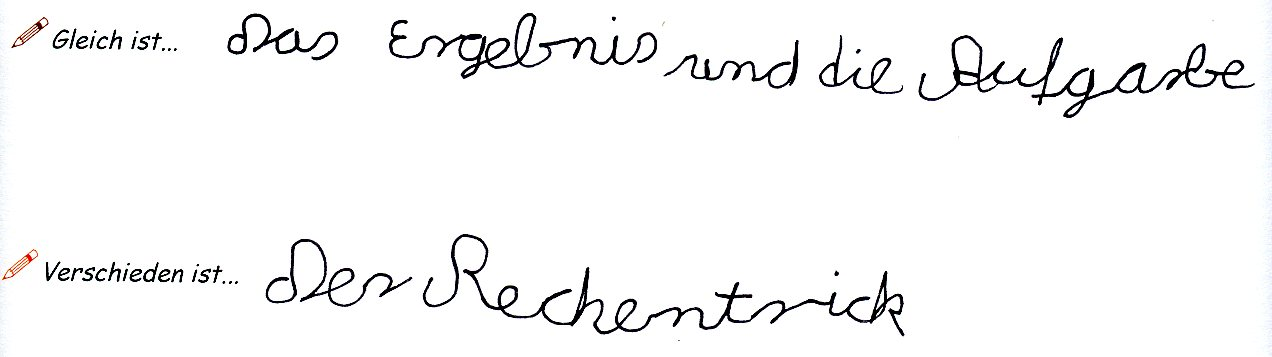 Gleich ist... Das Ergebnis und die Aufgabe
Verschieden ist... Der Rechentrick